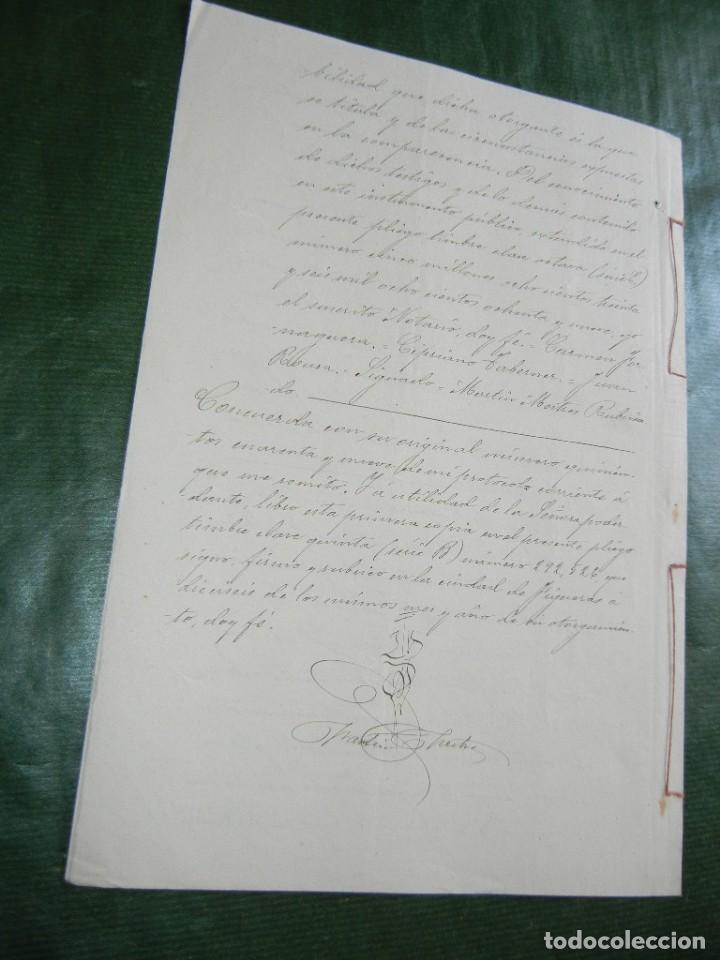 bilidad que dicha otorgante es la que
se titula y de las circunstancias expuestas
en la comparecencia. Del conocimiento
de dichos testigos y de lo demás contenido
en este instrumento público, extendido en el
presente pliego timbre clase octava (serie
número cinco millones ochocientos treinta
y seis mil ochocientos ochenta y nueve, yo
el suscrito Notario, doy fé. = Carmen
naguera. = Cipriano Taberner. = Juan
Roura. = Signado = Martin Mestres Rubrica
do.
Concuerda con su original número quinien-
tos cuarenta y nueve de mi protocolo corriente á
que me remito. Y á utilidad de la Señora poder
dante, libro esta primera copia en el presente pliego
timbre clase quinta (serie B) número que
signo, firmo y rubrico en la ciudad de Figueras á
dieciseis de los mismos mes y año de su otorgamien-
to, doy fé.
Martin Mestres
todocoleccion
todocoleccion.net